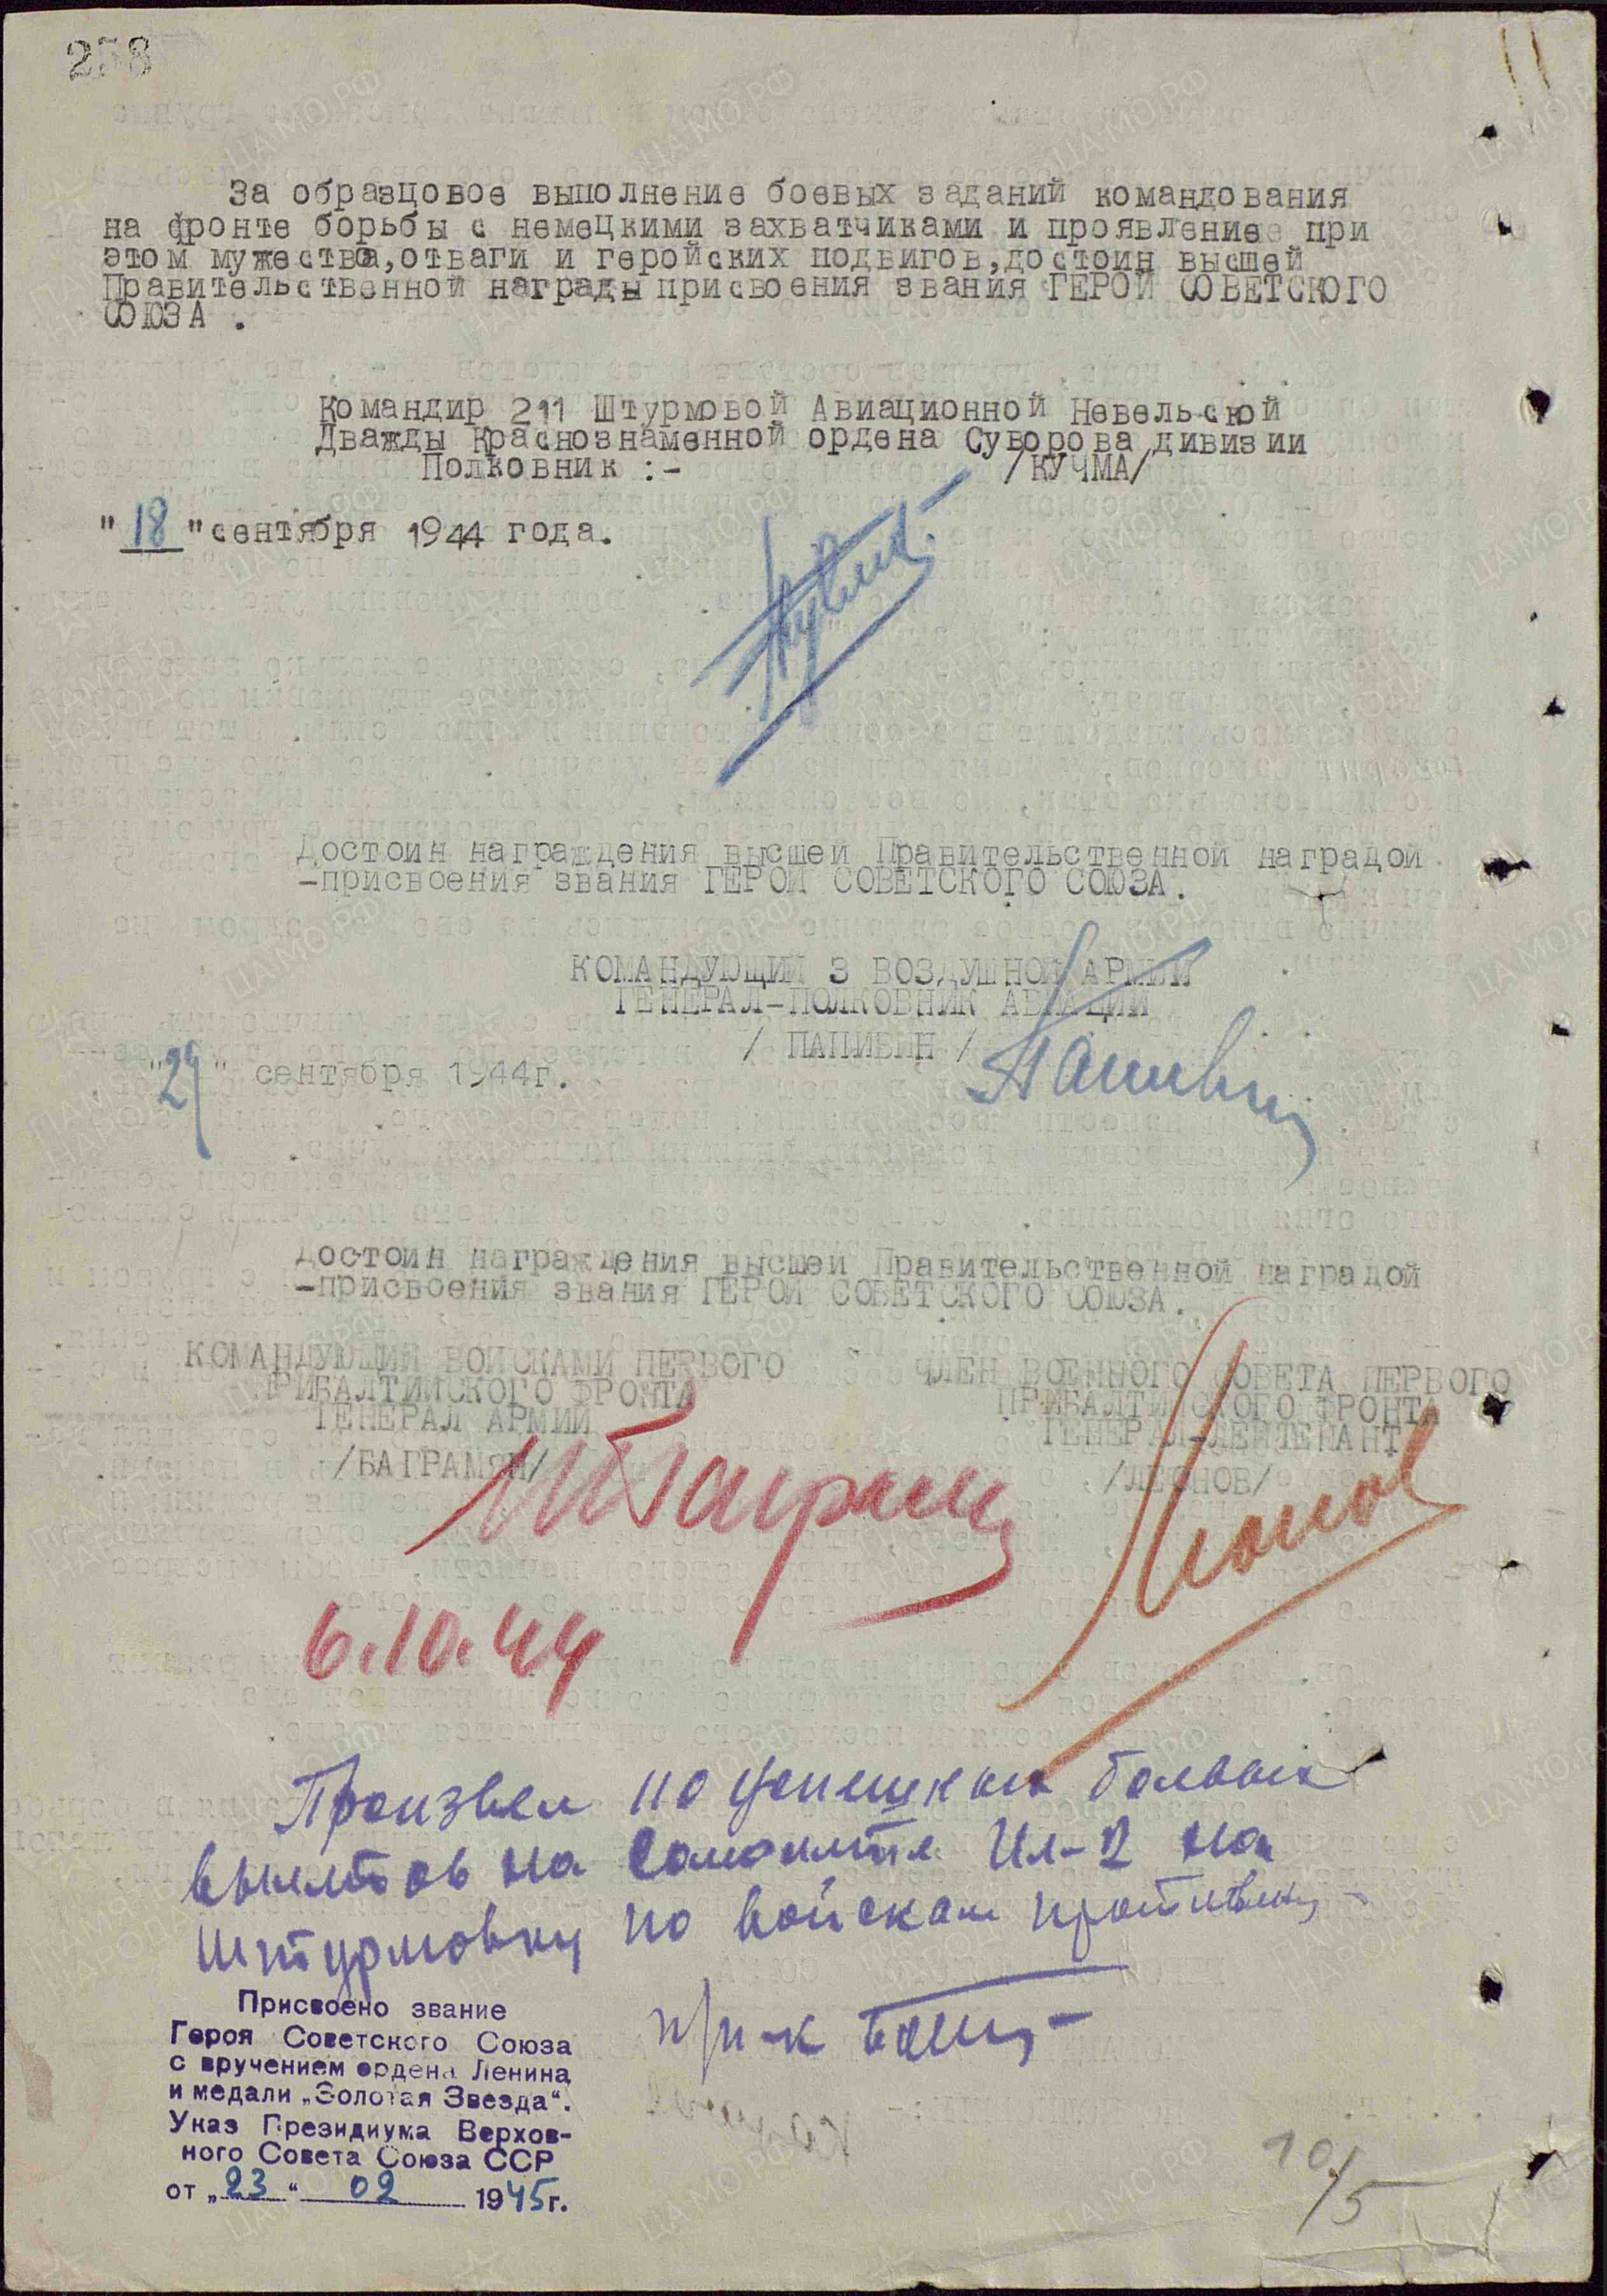 258
За образцовое выполнение боевых заданий командования
на фронте борьбы с немецкими захватчиками и проявление при
этом мужества,отваги и геройских подвигов,достоин высшей
Правительственной награды присвоения звания ГЕРОЙ СОВЕТСКОГО
СОЮЗА .
Командир 211 Штурмовой Авиационной Невельской
Дважды Краснознаменной ордена Суворова дивизии
Полковник :- /КУЧМА/
"18" сентября 1944 года.
Достоин награждения высшей Правительственной наградой
-присвоения звания ГЕРОЙ СОВЕТСКОГО СОЮЗА.
КОМАНДУЮЩИЙ 3 ВОЗДУШНОЙ АРМИЕЙ
ГЕНЕРАЛ-ПОЛКОВНИК АВИАЦИИ
/ ПАПИВИН /
"29" сентября 1944г.
Достоин награждения высшей Правительственной наградой
-присвоения звания ГЕРОЙ СОВЕТСКОГО СОЮЗА.
КОМАНДУЮЩИЙ ВОЙСКАМИ ПЕРВОГО
ПРИБАЛТИЙСКОГО ФРОНТА
ГЕНЕРАЛ АРМИИ
/БАГРАМЯН/
ЧЛЕН ВОЕННОГО СОВЕТА ПЕРВОГО
ПРИБАЛТИЙСКОГО ФРОНТА
ГЕНЕРАЛ-ЛЕЙТЕНАНТ
/ЛЕОНОВ/
6.10.44
Произвел 110 успешных боевых
вылетов на самолете Ил-2 на
штурмовку по войскам противника
п/п-к
Присвоено звание
Героя Советского Союза
с вручением ордена Ленина
и медали „Золотая Звезда“.
Указ Президиума Верхов-
ного Совета Союза ССР
от „23“ 02 1945г.
10/5